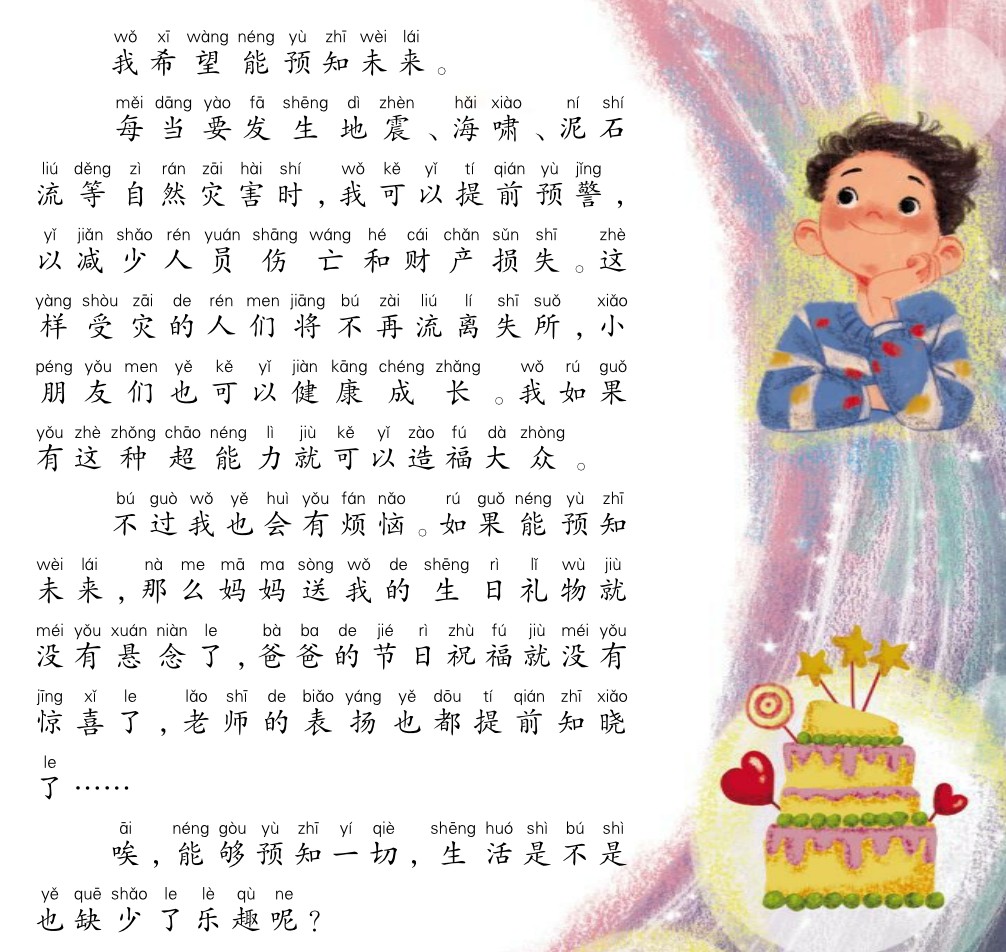 wǒ xī wàng néng yù zhī wèi lái
我希望能预知未来。
měi dāng yào fā shēng dì zhèn hǎi xiào ní shí
每当要发生地震、海啸、泥石
liú děng zì rán zāi hài shí wǒ kě yǐ tí qián yù jǐng
流等自然灾害时，我可以提前预警，
yǐ jiǎn shǎo rén yuán shāng wáng hé cái chǎn sǔn shī zhè
以减少人员伤亡和财产损失。这
yàng shòu zāi de rén men jiāng bú zài liú lí shī suǒ xiǎo
样受灾的人们将不再流离失所，小
péng yǒu men yě kě yǐ jiàn kāng chéng zhǎng wǒ rú guǒ
朋友们也可以健康成长。我如果
yǒu zhè zhǒng chāo néng lì jiù kě yǐ zào fú dà zhòng
有这种超能力就可以造福大众。
bú guò wǒ yě huì yǒu fán nǎo rú guǒ néng yù zhī
不过我也会有烦恼。如果能预知
wèi lái nà me mā ma sòng wǒ de shēng rì lǐ wù jiù
未来，那么妈妈送我的生日礼物就
méi yǒu xuán niàn le bà ba de jié rì zhù fú jiù méi yǒu
没有悬念了，爸爸的节日祝福就没有
jīng xǐ le lǎo shī de biǎo yáng yě dōu tí qián zhī xiǎo
惊喜了，老师的表扬也都提前知晓
le
了……
āi néng gòu yù zhī yí qiè shēng huó shì bú shì
唉，能够预知一切，生活是不是
yě quē shǎo le lè qù ne
也缺少了乐趣呢？